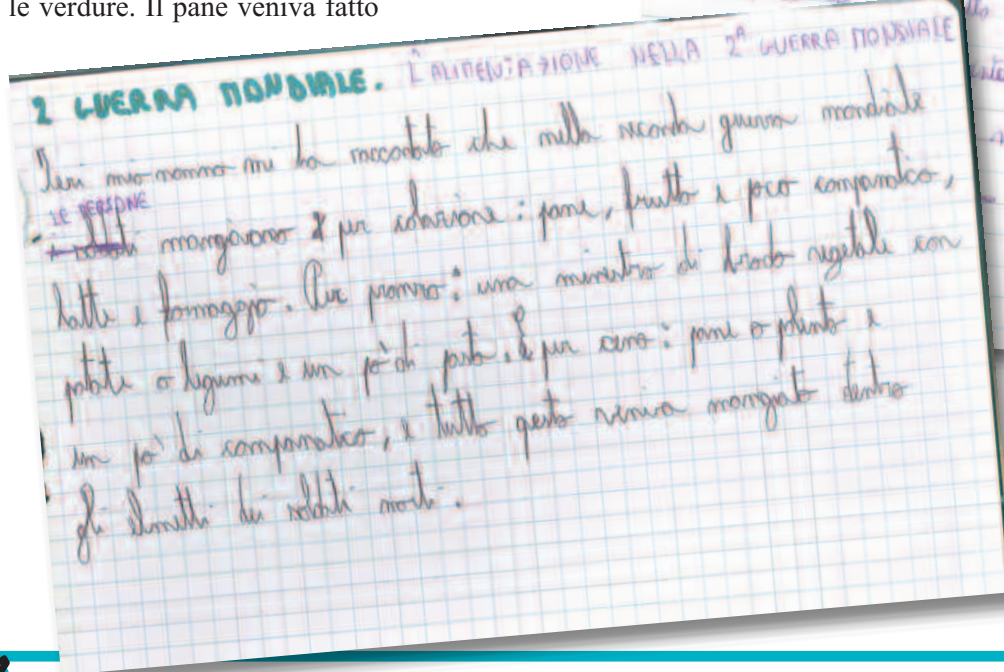 le verdure. Il pane veniva fatto
2 GUERRA MONDIALE. L'ALIMENTAZIONE NELLA 2ª GUERRA MONDIALE
Ieri mio nonno mi ha raccontato che nella seconda guerra mondiale
LE PERSONE
mangiavano per colazione: pane, frutta e poco companatico,
latte e formaggio. Per pranzo: una minestra di brodo vegetale con
patate o legumi e un po' di pasta. E per cena: pane o polenta e
un po' di companatico, e tutto questo veniva mangiato dentro
gli elmetti dei soldati morti.